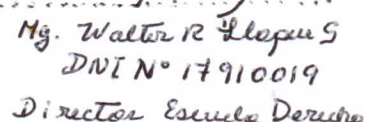 Mg. Walter R
DNI Nº 17910019
Director Escuela Derecho